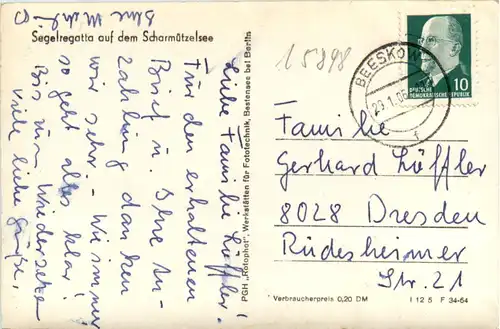 Segelregatta auf dem Scharmützelsee
Liebe Familie Löffler!
Für den erhaltenen
Brief u. Ihre An-
zahlung danken
wir sehr. - Wie immer
so geht alles klar!
Bis zum Wiedersehen
viele liebe Grüße,
Ihre
PGH „Rotophot", Werkstätten für Fototechnik, Bestensee bei Berlin
15898
BEESKOW
29.1.65
f
DEUTSCHE
DEMOKRATISCHE REPUBLIK
10
Familie
Gerhard Löffler
8028 Dresden
Rüdesheimer
Str. 21
Verbraucherpreis 0,20 DM
I 12 5 F 34-64